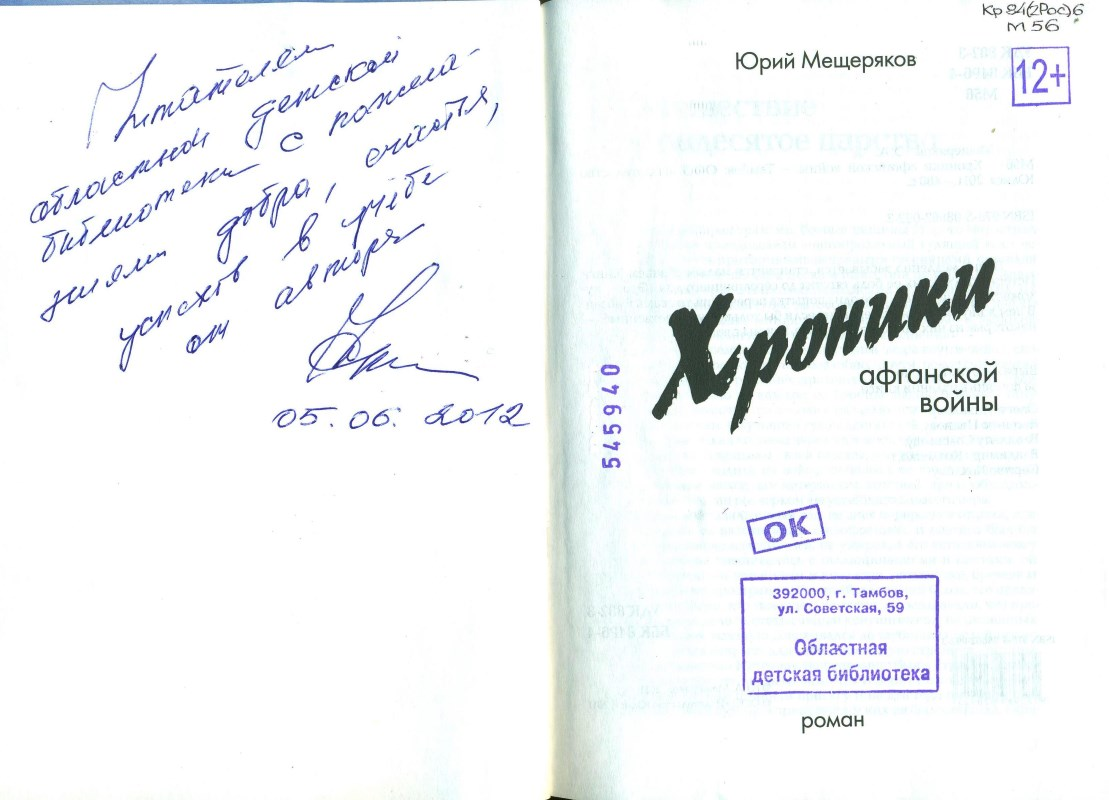 Читателям
областной детской
библиотеки с пожела-
ниями добра, счастья,
успехов в учёбе
от автора
05.06.2012
Кр 84(2Рос)6
М 56
Юрий Мещеряков
12+
Хроники
афганской
войны
545940
ОК
392000, г. Тамбов,
ул. Советская, 59
Областная
детская библиотека
роман